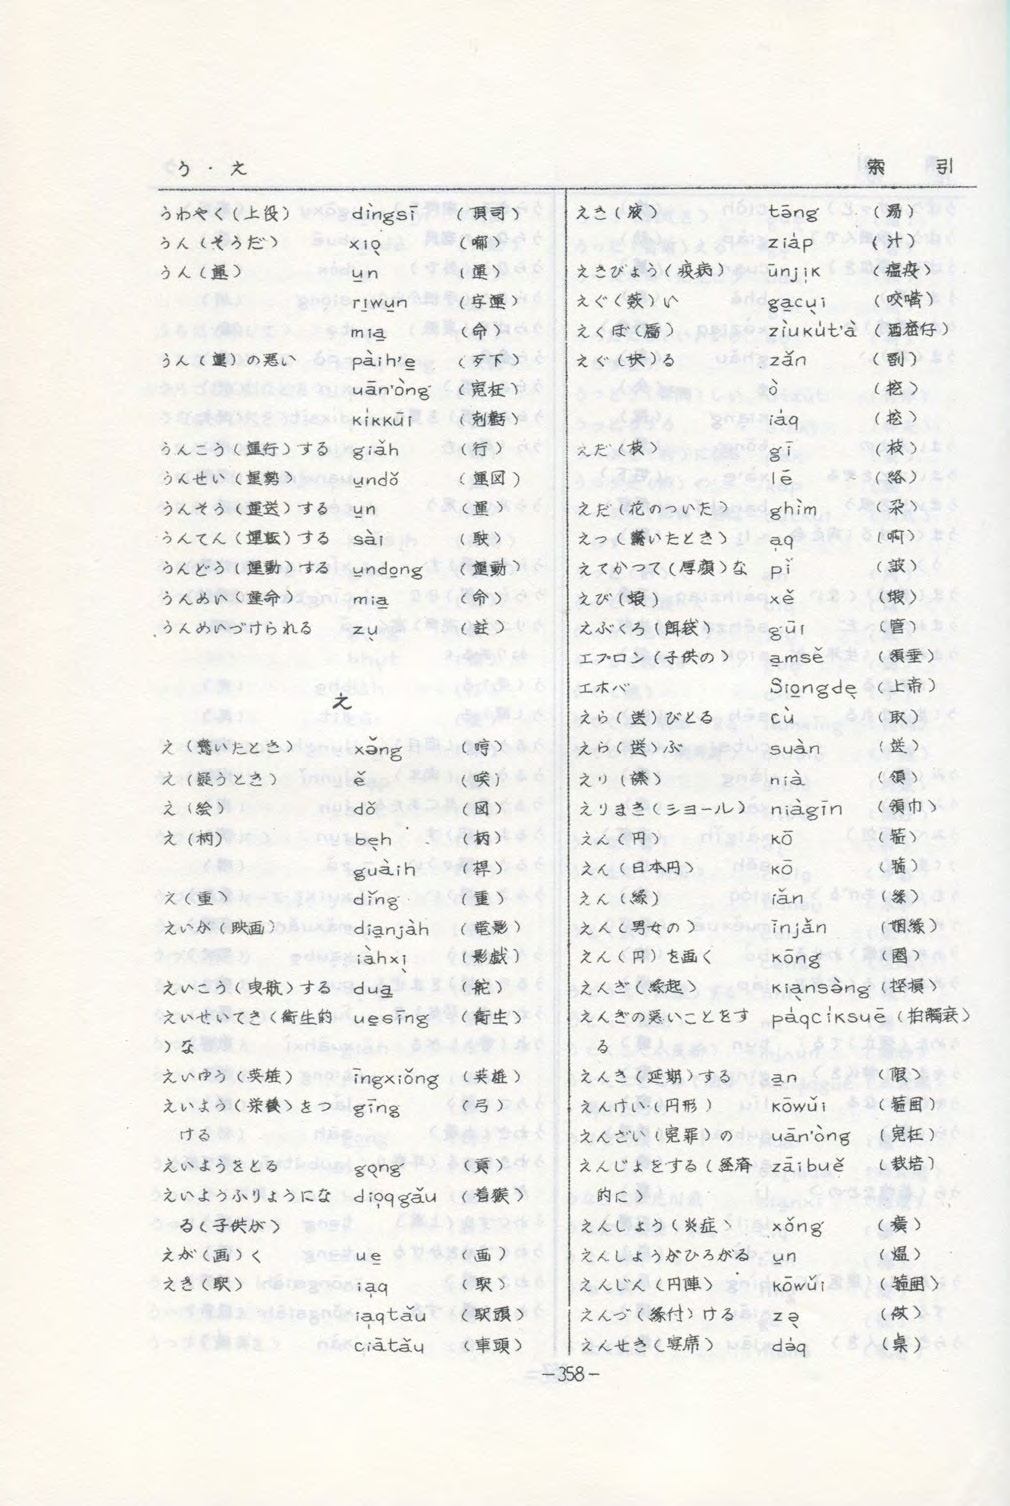 う・え
索引
うわやく(上役) dìngsī (頂司)
うん(そうだ) xio̤ (唧)
うん(運) u̲n (運)
ri̲wu̲n (字運)
mia̲ (命)
うん(運)の悪い pàih'e̲ (歹下)
uān'òng (冤枉)
kı̍kkūi (剋虧)
うんこう(運行)する giǎh (行)
うんせい(運勢) u̲ndǒ (運図)
うんそう(運送)する u̲n (運)
うんてん(運転)する sài (駛)
うんどう(運動)する u̲ndo̲ng (運動)
うんめい(運命) mia̲ (命)
うんめいづけられる zṳ (註)
え
え(驚いたとき) xǎng
え(疑うとき) ě (唉)
え(絵) dǒ (図)
え(柄) bẹh (柄)
guàih (桿)
え(重) dǐng (重)
えいが(映画) dia̲njàh (電影)
iàhxị (影戲)
えいこう(曳航)する dua̲ (舵)
えいせいてき(衛生的 ue̲sīng (衛生)
)な
えいゆう(英雄) īngxiǒng (英雄)
えいよう(栄養)をつ gīng (弓)
ける
えいようをとる gọng (貢)
えいようふりょうにな diọqgǎu (着猴)
る(子供が)
えが(画)く ue̲ (画)
えき(駅) iạq (駅)
iạqtǎu (駅頭)
ciātǎu (車頭)
えき(液) tāng (湯)
ziáp (汁)
えきびょう(疫病) ūnjịk (瘟疫)
えぐ(蘞)い ga̲cụi (咬嘴)
えくぼ(靨) zìukút'à (酒窟仔)
えぐ(抉)る zǎn
ò (挖)
iáq (挖)
えだ(枝) gī (枝)
lē
えだ(花のついた) ghìm
えっ(驚いたとき) ạq (啊)
えてかって(厚顔)な pǐ
えび(蝦) xě (蝦)
えぶくろ(餌袋) gūi (管)
エプロン(子供の) a̲msě (頷垂)
エホバ Sio̲ngdẹ (上帝)
えら(送)びとる cù (取)
えら(送)ぶ suàn
えり(襟) nià (領)
えりまき(ショール) niàgīn (領巾)
えん(円) kō (箍)
えん(日本円) kō (箍)
えん(縁) iǎn (縁)
えん(男女の) īnjǎn (姻縁)
えん(円)を画く kōng (圏)
えんぎ(縁起) kiạnsàng
えんぎの悪いことをす páqcı̍ksuē (拍觸衰)
る
えんき(延期)する a̲n (限)
えんけい(円形) kōwǔi (箍囲)
えんざい(冤罪)の uān'òng (冤枉)
えんじょをする(経済 zāibuě (栽培)
的に)
えんしょう(炎症) xǒng (癀)
えんしょうがひろがる u̲n (熅)
えんじん(円陣) kōwǔi (箍囲)
えんづ(縁付)ける zə̣
えんせき(宴席) də́q (桌)
-358-